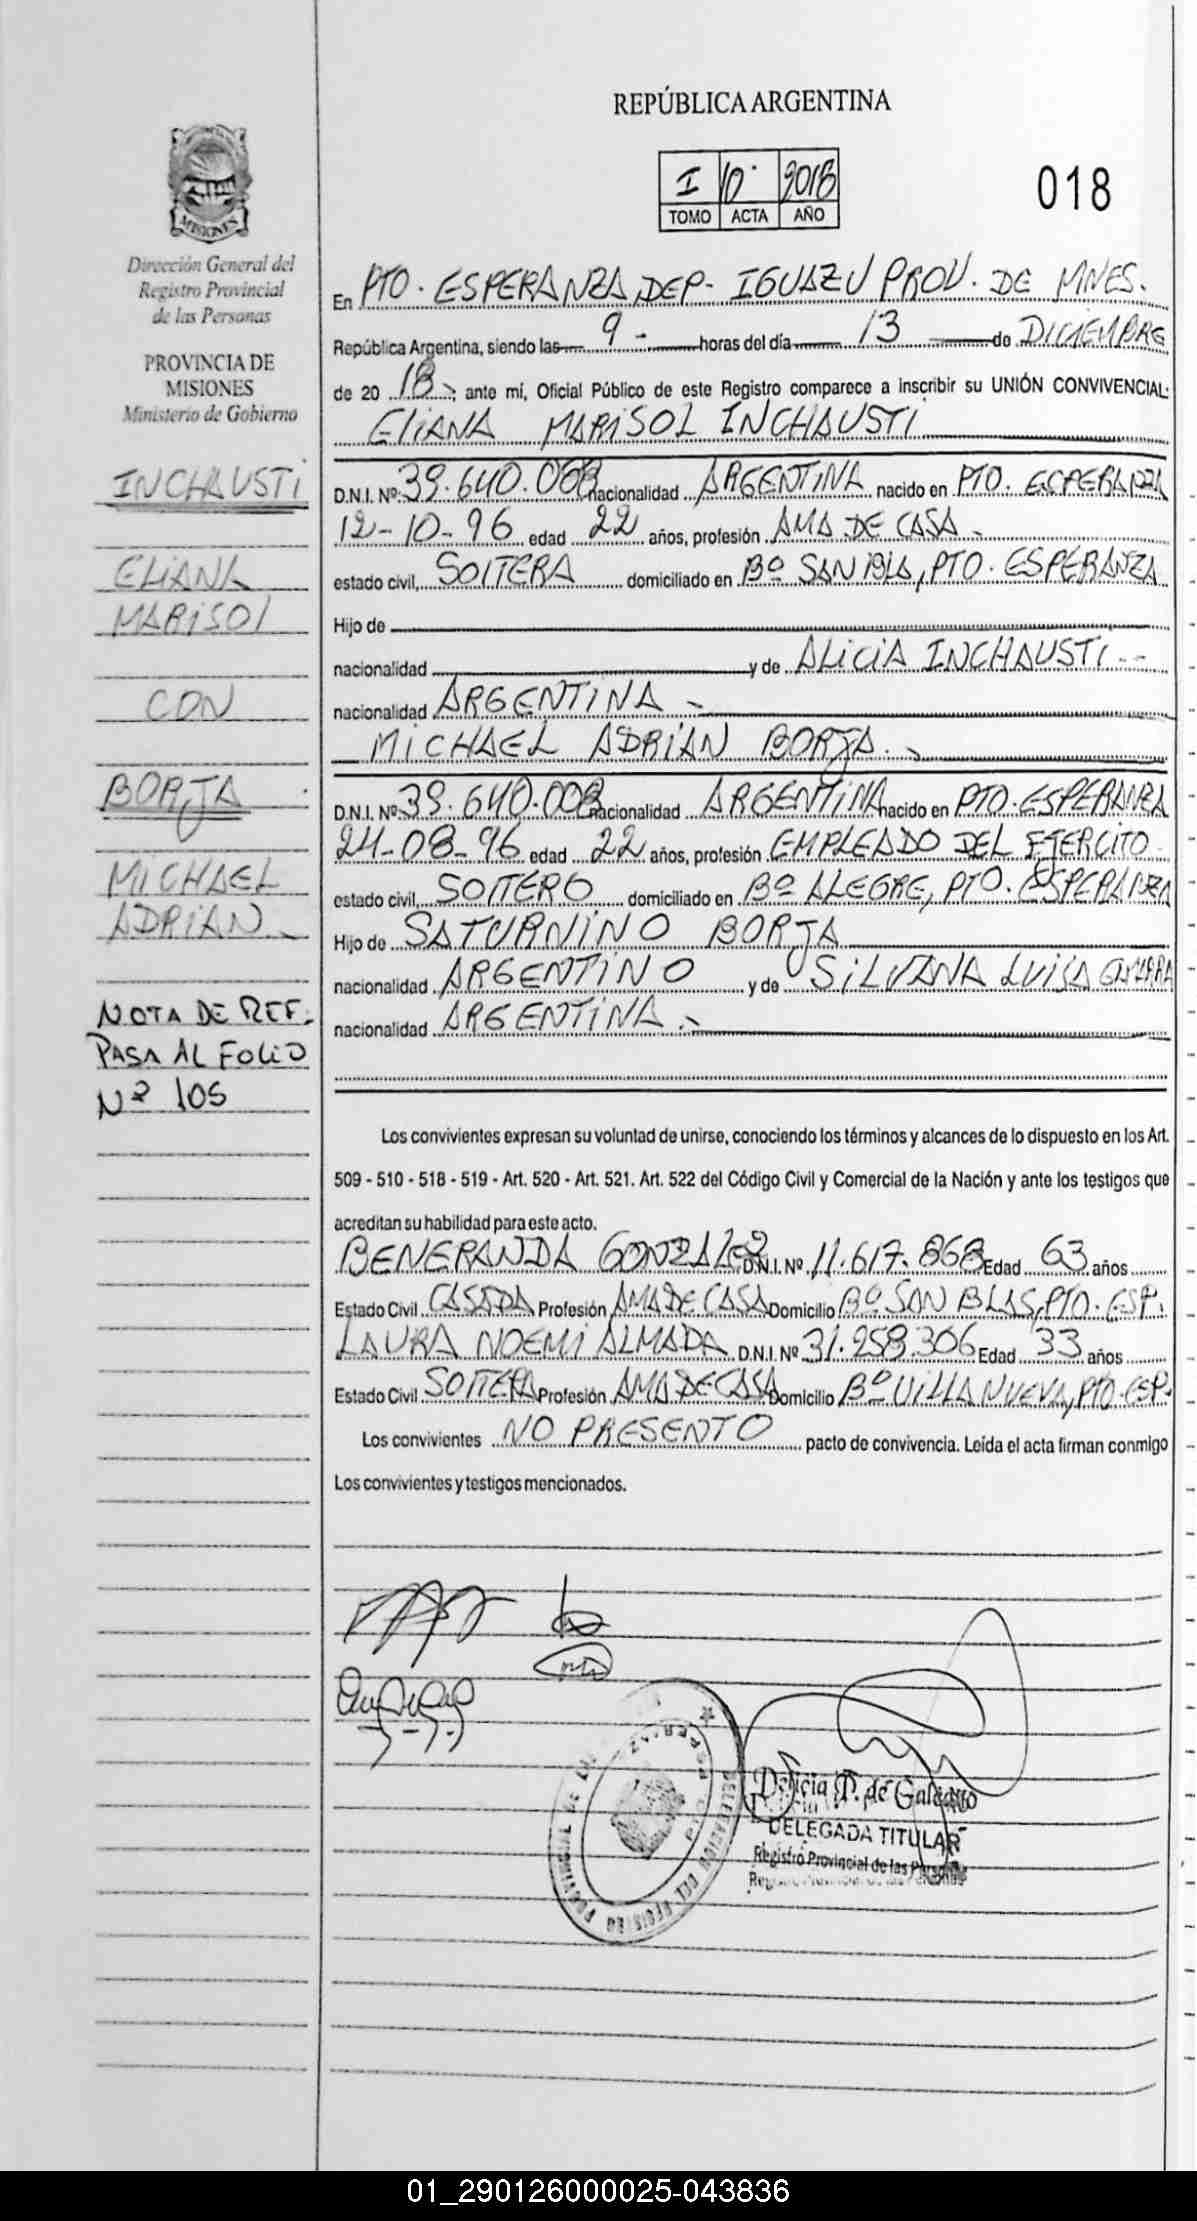 REPÚBLICA ARGENTINA
I 10 2018
TOMO ACTA AÑO
018
MISIONES
Dirección General del
Registro Provincial
de las Personas
PROVINCIA DE
MISIONES
Ministerio de Gobierno
INCHAUSTI
ELIANA
MARISOL
CON
BORJA
MICHAEL
ADRIAN
NOTA DE REF.
PASA AL FOLIO
Nº 105
En PTO. ESPERANZA DEP. IGUAZU PROV. DE MNES.
República Argentina, siendo las 9 horas del día 13 de DICIEMBRE
de 20 18 ante mí, Oficial Público de este Registro comparece a inscribir su UNIÓN CONVIVENCIAL:
ELIANA MARISOL INCHAUSTI
D.N.I. Nº 39.640.068 nacionalidad ARGENTINA nacido en PTO. ESPERANZA
12-10-96 edad 22 años, profesión AMA DE CASA
estado civil, SOLTERA domiciliado en Bº SAN BLA, PTO. ESPERANZA
Hijo de
nacionalidad y de ALICIA INCHAUSTI --
nacionalidad ARGENTINA
MICHAEL ADRIAN BORJA
D.N.I. Nº 39.640.008 nacionalidad ARGENTINA nacido en PTO. ESPERANZA
24-08-96 edad 22 años, profesión EMPLEADO DEL EJERCITO
estado civil, SOLTERO domiciliado en Bº ALEGRE, PTO. ESPERANZA
Hijo de SATURNINO BORJA
nacionalidad ARGENTINO y de SILVANA LUISA
nacionalidad ARGENTINA
Los convivientes expresan su voluntad de unirse, conociendo los términos y alcances de lo dispuesto en los Art.
509 - 510 - 518 - 519 - Art. 520 - Art. 521. Art. 522 del Código Civil y Comercial de la Nación y ante los testigos que
acreditan su habilidad para este acto.
BENERANDA GONZALEZ D.N.I. Nº 11.617.868 Edad 63 años
Estado Civil CASADA Profesión AMA DE CASA Domicilio Bº SAN BLAS, PTO. ESP.
LAURA NOEMI ALMADA D.N.I. Nº 31.258.306 Edad 33 años
Estado Civil SOLTERA Profesión AMA DE CASA Domicilio Bº VILLA NUEVA, PTO. ESP.
Los convivientes NO PRESENTO pacto de convivencia. Leída el acta firman conmigo
Los convivientes y testigos mencionados.
DELEGACION DEL REGISTRO PROVINCIAL DE LAS
Delicia de Galeano
DELEGADA TITULAR
Registro Provincial de las Personas
01_290126000025-043836